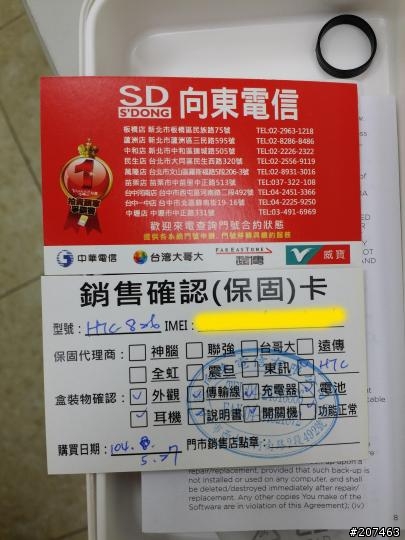 SD
S'DONG
向東電信
板橋店 新北市板橋區民族路75號 TEL:02-2963-1218
蘆洲店 新北市蘆洲區三民路595號 TEL:02-8286-8486
中和店 新北市中和區連城路505號 TEL:02-2226-2322
民生店 台北市大同區民生西路320號 TEL:02-2556-9119
萬隆店 台北市文山區羅斯福路5段206-3號 TEL:02-8931-3016
苗栗店 苗栗市中苗里中正路513號 TEL:037-322-108
台中河南店 台中市西屯區河南路二段492號 TEL:04-2451-3366
台中一中店 台中市北區錦南街19-16號 TEL:04-2225-9250
中壢店 中壢市中正路331號 TEL:03-491-6969
1
歡迎來電查詢門號合約狀態
提供各系統門號申辦、門號移轉與續約服務
中華電信 台灣大哥大 FAREASTONE 遠傳 威寶
銷售確認(保固)卡
型號: HTC 826 IMEI:
保固代理商: 神腦 聯強 台哥大 遠傳
全虹 震旦 東訊 HTC
盒裝物確認: 外觀 傳輸線 充電器 電池
耳機 說明書 開關機 功能正常
購買日期: 104. 5.27 門市銷售店點章:
repair/replacement, provided that such back-up is
not installed or used on any computer, and shall
be deleted/destroyed immediately after repair/
replacement. Any other copies You make of the
Software are in violation of this Agreement); (iv)
8
#207463